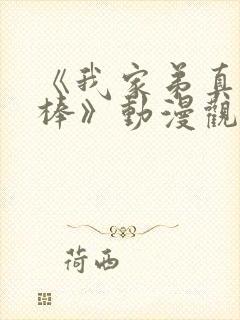 《我家弟真
棒》動漫觀
荷西